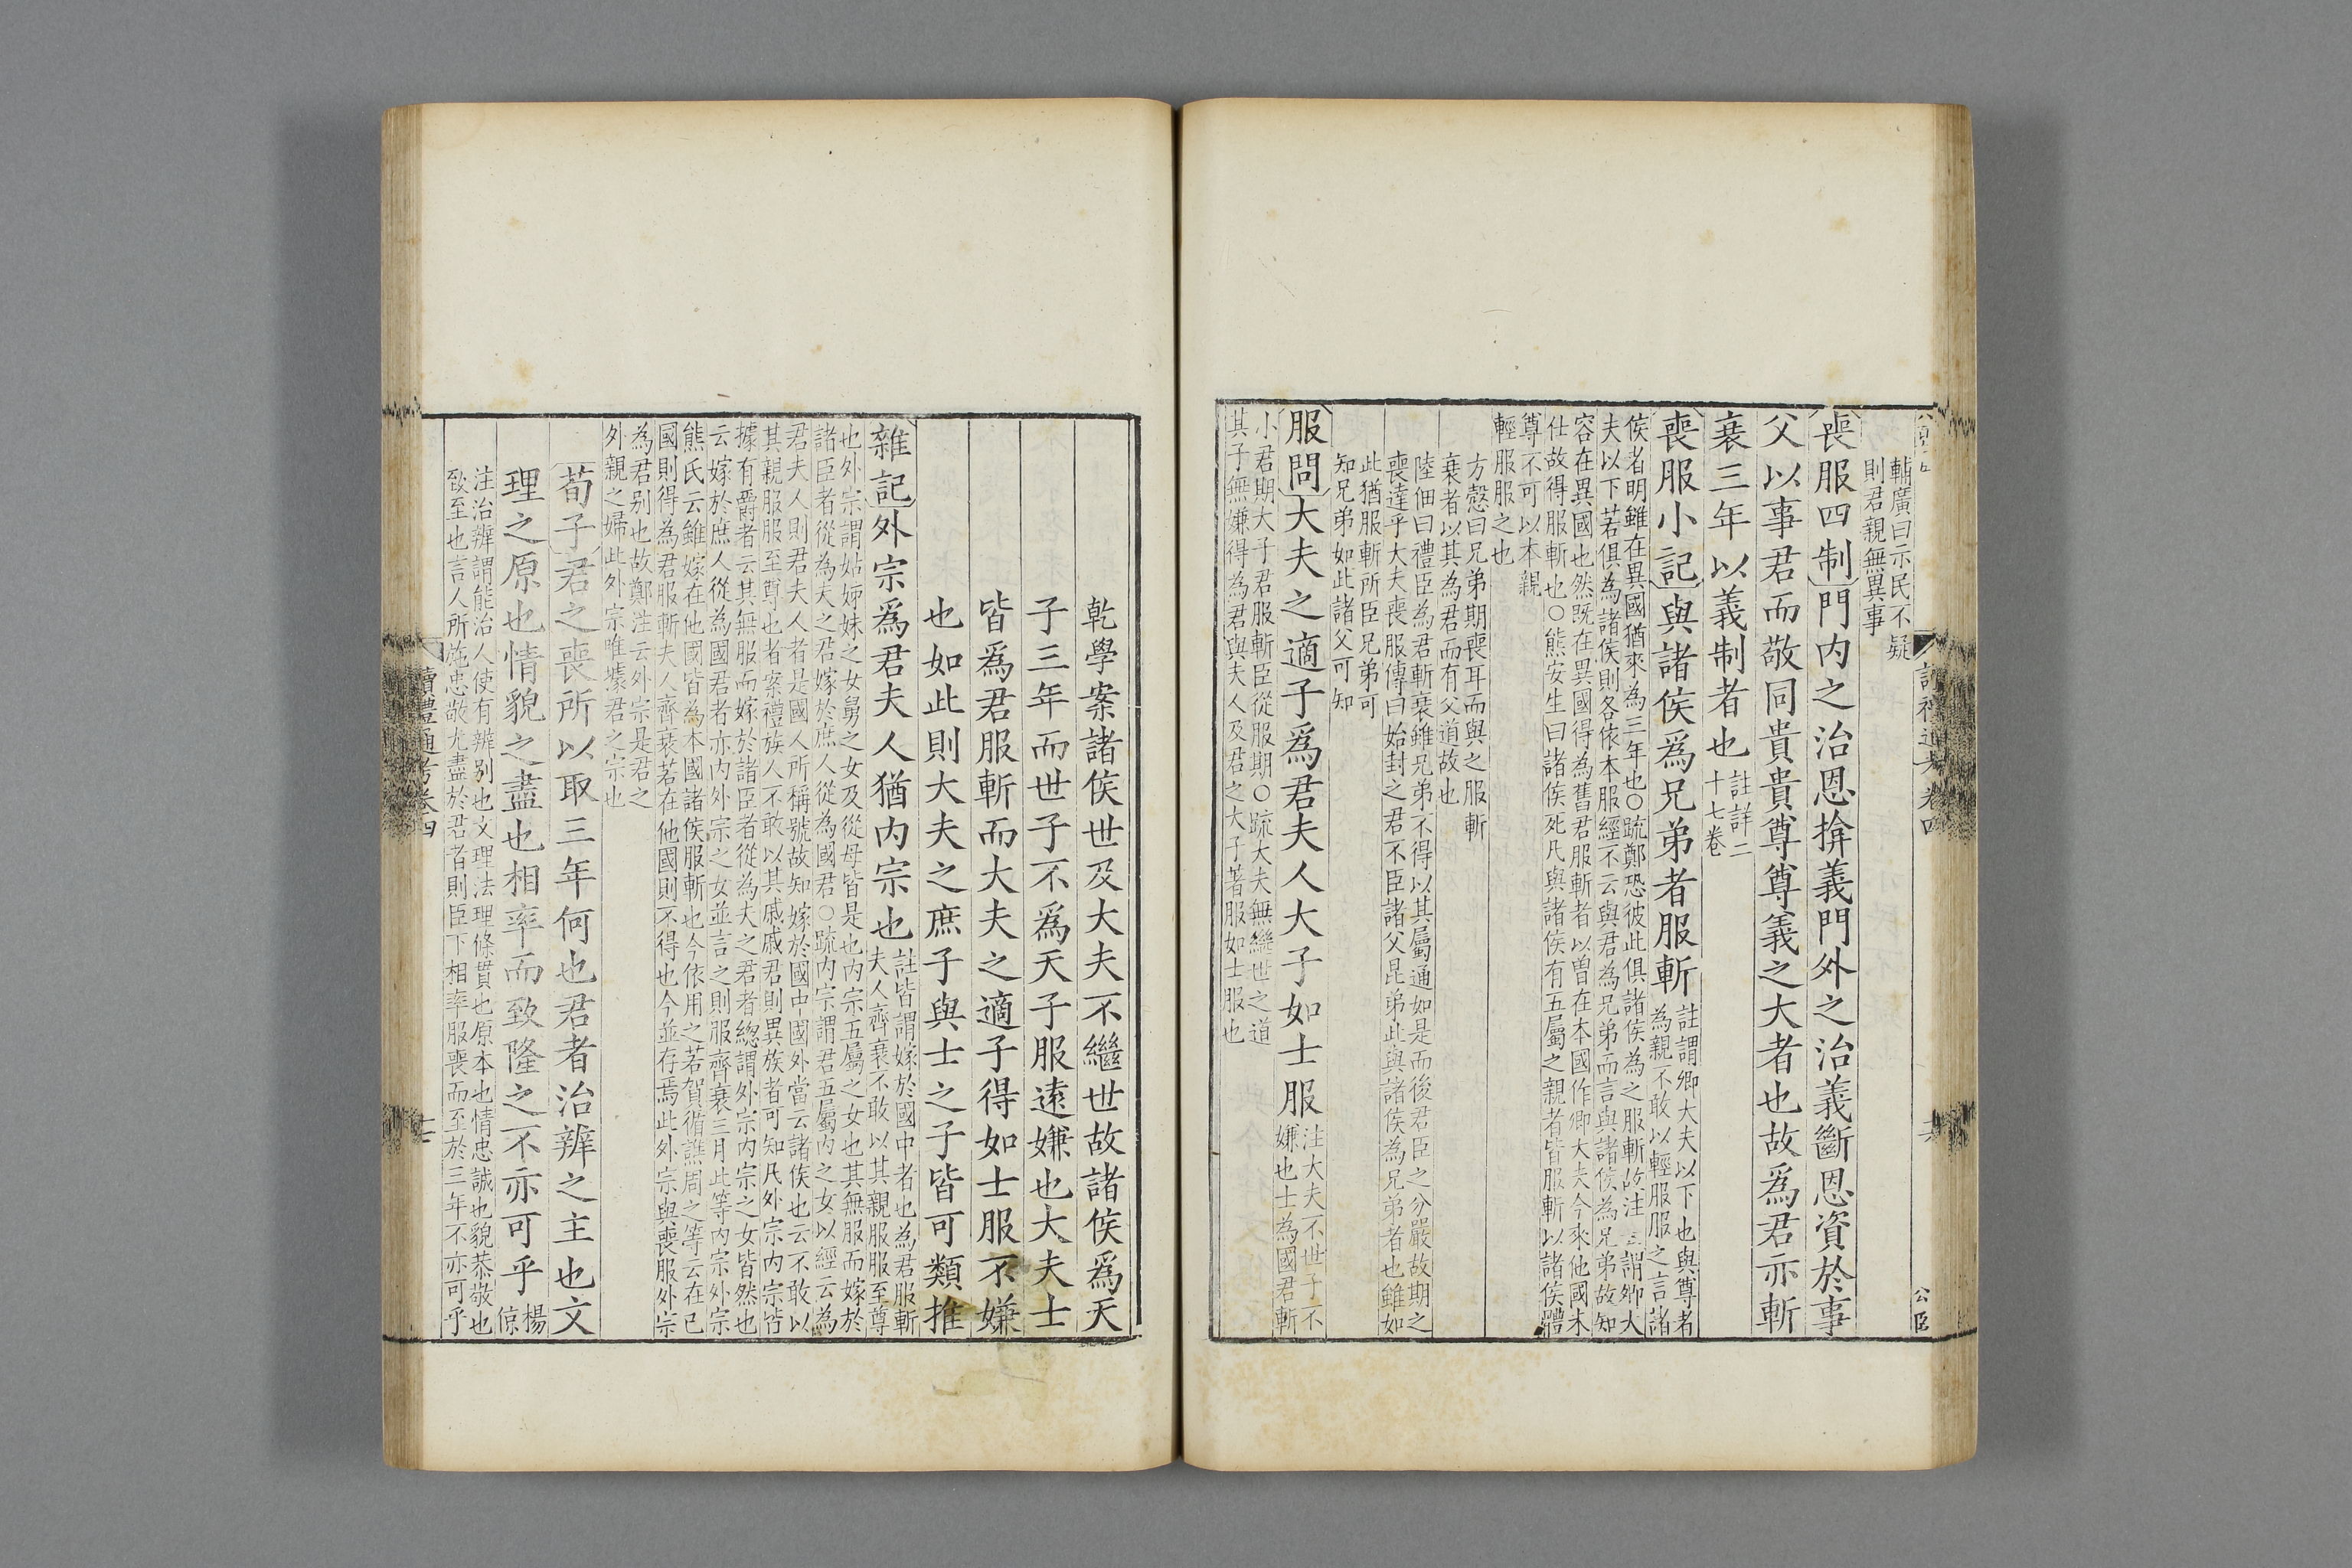 輔廣曰示民不疑
則君親無異事
喪服四制門内之治恩揜義門外之治義斷恩資於事
父以事君而敬同貴貴尊尊義之大者也故爲君亦斬
衰三年以義制者也
註詳二
十七卷
喪服小記與諸侯爲兄弟者服斬
註謂卿大夫以下也與尊者
為親不敢以輕服服之言諸
侯者明雖在異國猶來為三年也○疏鄭恐彼此俱諸侯為之服斬故注云謂卿大
夫以下若俱為諸侯則各依本服經不云與君為兄弟而言與諸侯為兄弟故知
容在異國也然既在異國得為舊君服斬者以曾在本國作卿大夫今來他國未
仕故得服斬也○熊安生曰諸侯死凡與諸侯有五屬之親者皆服斬以諸侯體
尊不可以本親
輕服服之也
方慤曰兄弟期喪耳而與之服斬
衰者以其為君而有父道故也
陸佃曰禮臣為君斬衰雖兄弟不得以其屬通如是而後君臣之分嚴故期之
喪達乎大夫喪服傳曰始封之君不臣諸父昆弟此與諸侯為兄弟者也雖如
此猶服斬所臣兄弟可
知兄弟如此諸父可知
服問大夫之適子爲君夫人大子如士服
注大夫不世子不
嫌也士為國君斬
小君期大子君服斬臣從服期○疏大夫無繼世之道
其子無嫌得為君與夫人及君之大子著服如士服也
讀禮通考卷四
乾學案諸侯世及大夫不繼世故諸侯爲天
子三年而世子不爲天子服遠嫌也大夫士
皆爲君服斬而大夫之適子得如士服不嫌
也如此則大夫之庶子與士之子皆可類推
雜記外宗爲君夫人猶内宗也
註皆謂嫁於國中者也為君服斬
夫人齊衰不敢以其親服服至尊
也外宗謂姑姊妹之女舅之女及從母皆是也内宗五屬之女也其無服而嫁於
諸臣者從為夫之君嫁於庶人從為國君○疏内宗謂君五屬内之女以經云為
君夫人則君夫人者是國人所稱號故知嫁於國中國外當云諸侯也云不敢以
其親服服至尊也者案禮族人不敢以其戚戚君則異族者可知凡外宗内宗皆
據有爵者云其無服而嫁於諸臣者從為夫之君者總謂外宗内宗之女皆然也
云嫁於庶人從為國君者亦内外宗之女並言之則服齊衰三月此等内宗外宗
熊氏云雖嫁在他國皆為本國諸侯服斬也今依用之若賀循譙周之等云在己
國則得為君服斬夫人齊衰若在他國則不得也今並存焉此外宗與喪服外宗
為君别也故鄭注云外宗是君之
外親之婦此外宗唯據君之宗也
荀子君之喪所以取三年何也君者治辨之主也文
理之原也情貌之盡也相率而致隆之不亦可乎
楊
倞
注治辨謂能治人使有辨别也文理法理條貫也原本也情忠誠也貌恭敬也
致至也言人所施忠敬尤盡於君者則臣下相率服喪而至於三年不亦可乎
讀禮通考卷四